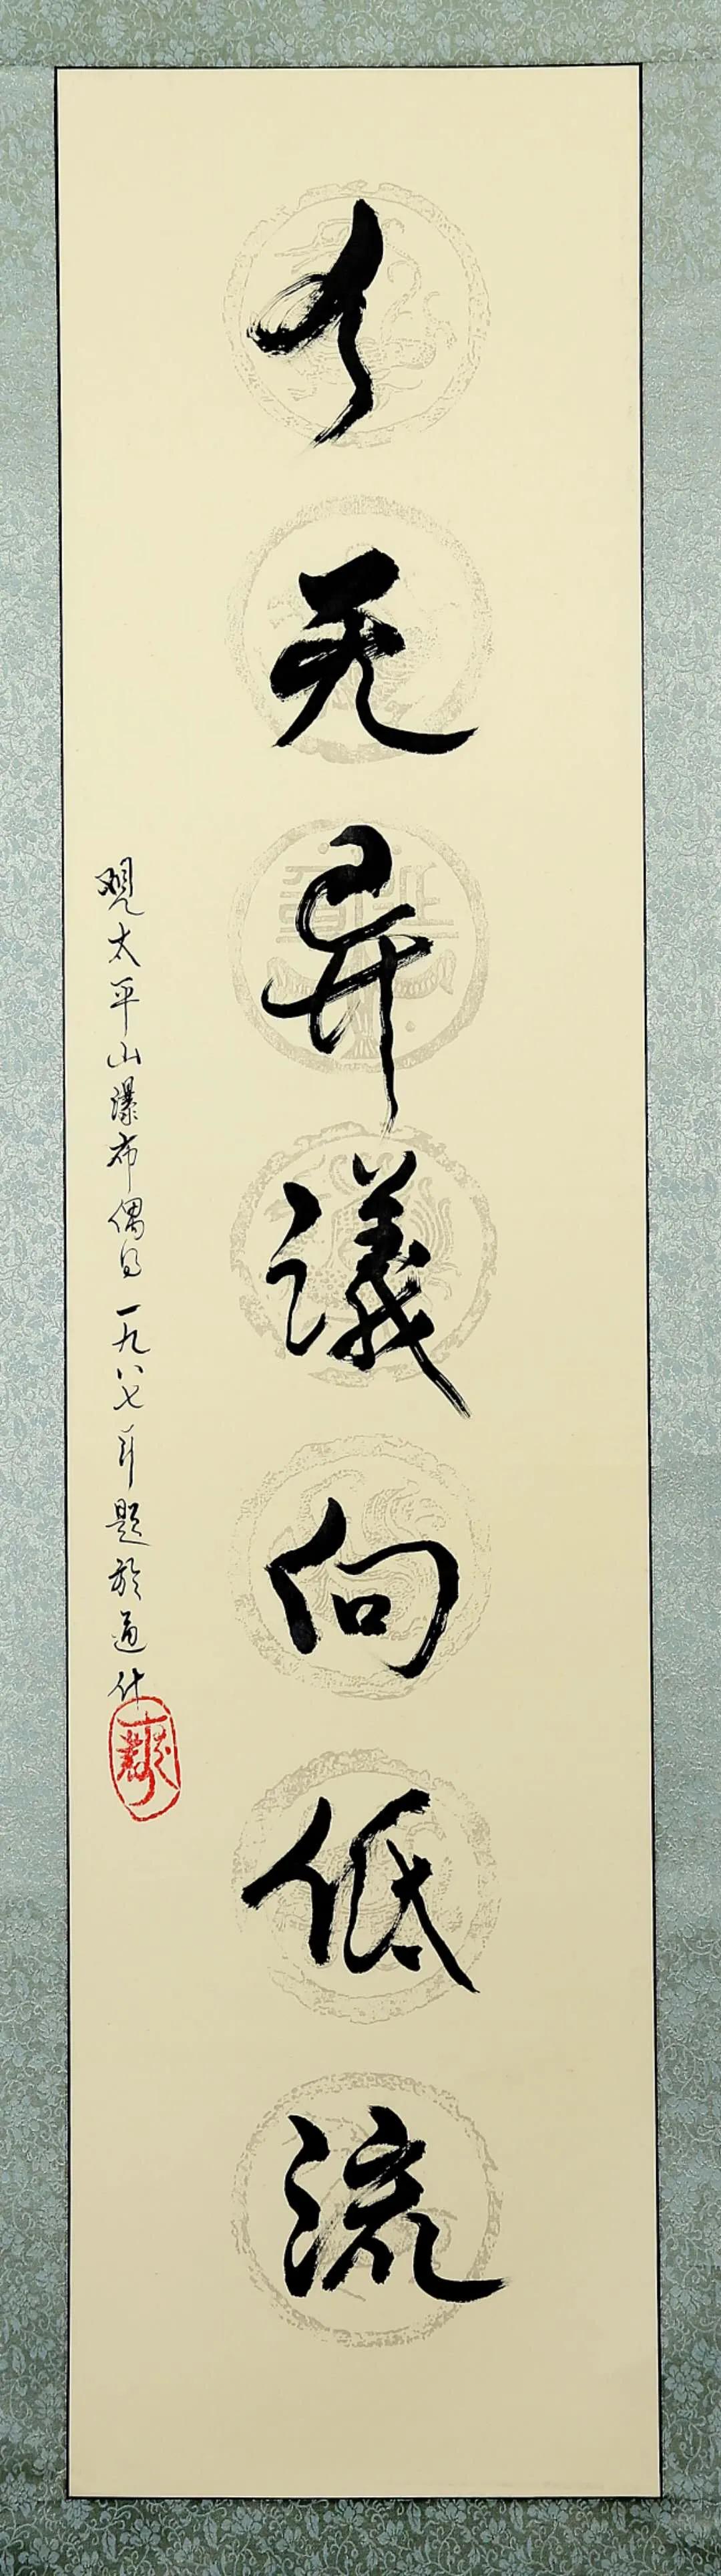 人无异議向低流
观太平山瀑布偶得一九八七年题於道什